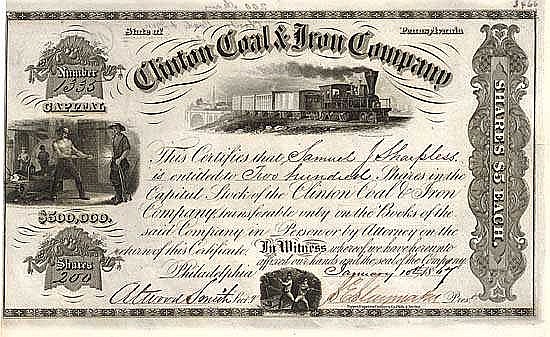 State of Pennsylvania
Clinton Coal & Iron Company
Number
1335
CAPITAL
$500,000.
Shares
200
SHARES $5 EACH.
This Certifies that Samuel J Sharpless
is entitled to Two hundred Shares in the
Capital Stock of the Clinton Coal & Iron
Company, transferable only on the Books of the
said Company in Person or by Attorney on the
return of this Certificate. In Witness whereof, we have hereunto
affixed our hands and the seal of the Company.
Philadelphia January 10th 1867
Atwood Smith Sec.y Pres.t